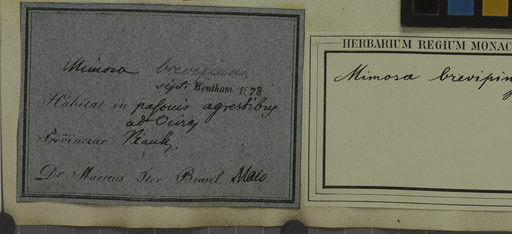 Mimosa brevipinna
script. Bentham. 1873
Habitat in pascuis agrestibus
ad Oeiras
Provinciae Piauh.
Dr. Martius Iter Brasil. Maio
HERBARIUM REGIUM MONAC
Mimosa brevipin